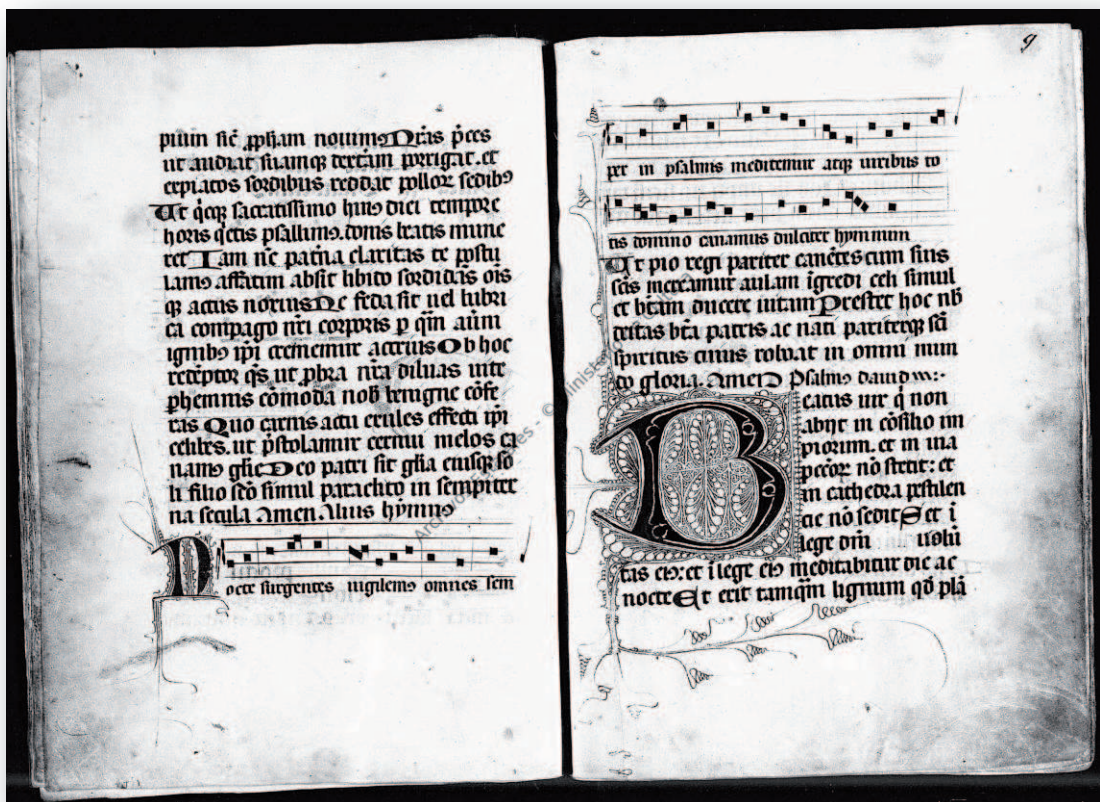 pium sic̄ ꝓph̄am nouimꝰ N̄ras p̄ces
ut audiat suamqꝫ dextām porrigat. et
expiatos sordibus reddat polloꝝ sedibꝰ
Ut q̇qꝫ sacratissimo huiꝰ diei tempore
horis q̇etis psallimꝰ. donis beatis mune
ret Iam nc̄ pat̄na claritas te postu
lamꝰ affatim absit libido sordidās oīs
qꝫ actus noxius Ne feda sit uel lubri
ca conpago nr̄i corporis ꝑ q̄m au̇ni
ignibꝰ ip̄i crememur acrius Ob hoc
redēptor q̄s ut ꝓbra nr̄a diluas uite
ꝑhennis cōmoda nob̄ benigne cōfe
ras Quo carnis actu exules effecti ip̄i
celibes. ut p̄stolamur cernui melos ca
namꝰ gl̄ie Deo patri sit gl̄ia eiusqꝫ so
li filio sc̄o simul paraclito in sempiter
na secula Amen Alius hymnꝰ
Nocte surgentes uigilemꝰ omnes sem
9
per in psalmis meditemur atqꝫ uiribus to
tis domino canamus dulciter hymnum
Ut pio regi pariter canētes cum suis
sc̄is mereamur aulam īgredi celi simul
et b̄tam ducere uitam Prestet hoc nob̄
deitas bt̄a patris ac nati pariterqꝫ sc̄i
spiritus cuius reboat in omni mun
do gloria. Amen Psalmꝰ dauid
Beatus uir q̇ non
abijt in cōsilio im
piorum. et in uia
peccōꝝ nō stetit: et
in cathedra pestilen
cie nō sedit Set ī
lege dn̄i uolū
tas eiꝰ: et ī lege eiꝰ meditabitur die ac
nocte Et erit tamq̄m lignum qd̄ plā